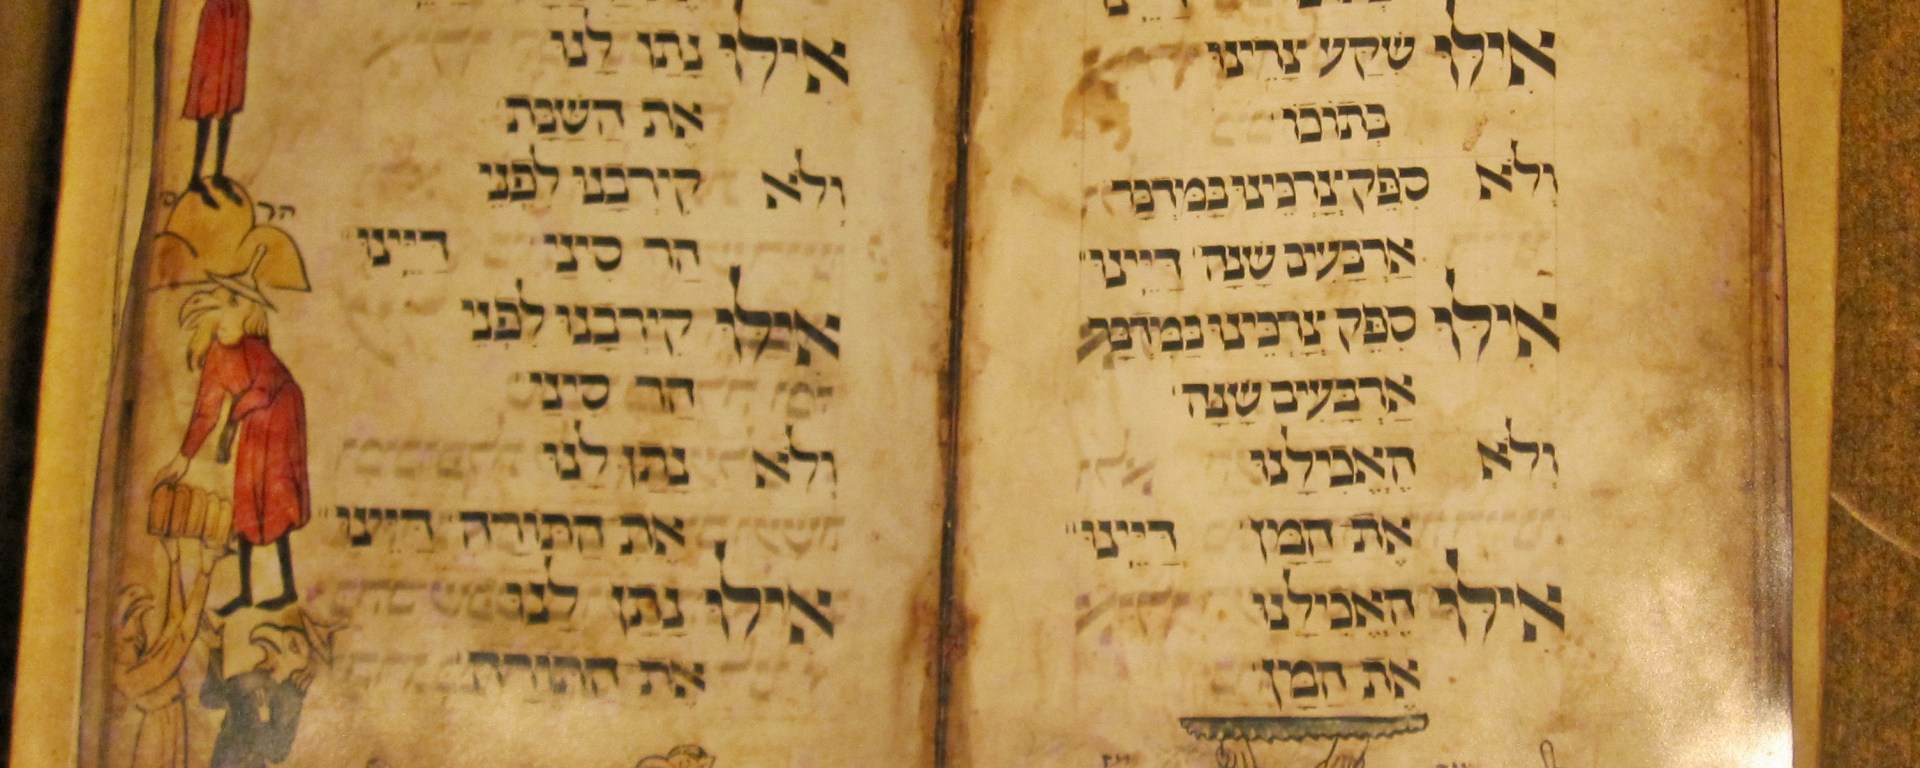 אִילוּ שִׁקַע צָרֵינוּ
בְּתוֹכוֹ
וְלֹא סִפֵּק צָרְכֵּינוּ בַּמִּדְבָּר
אַרְבָּעִים שָׁנָה דַּיֵּינוּ
אִילוּ סִפֵּק צָרְכֵּינוּ בַּמִּדְבָּר
אַרְבָּעִים שָׁנָה
וְלֹא הֶאֱכִילָנוּ
אֶת הַמָּן דַּיֵּינוּ
אִילוּ הֶאֱכִילָנוּ
אֶת הַמָּן
אִילוּ נָתַן לָנוּ
אֶת הַשַּׁבָּת
וְלֹא קֵירְבָנוּ לִפְנֵי
הַר סִינַי דַּיֵּינוּ
הר
אִילוּ קֵירְבָנוּ לִפְנֵי
הַר סִינַי
וְלֹא נָתַן לָנוּ
אֶת הַתּוֹרָה דַּיֵּינוּ
אִילוּ נָתַן לָנוּ
אֶת הַתּוֹרָה